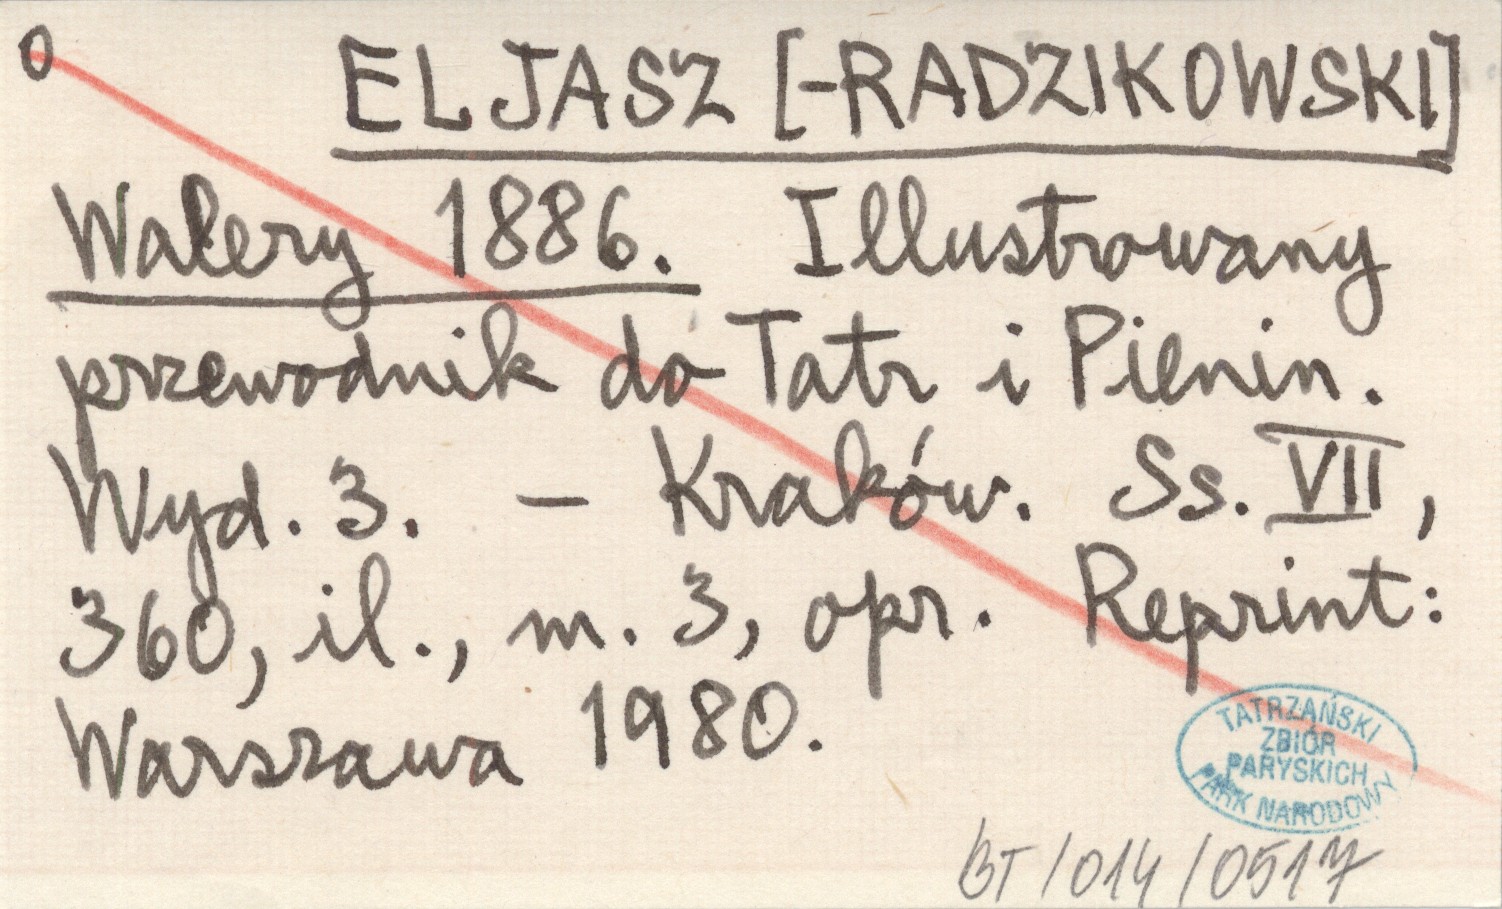 0
ELJASZ [-RADZIKOWSKI]
Walery 1886. Illustrowany
przewodnik do Tatr i Pienin.
Wyd. 3. – Kraków. Ss. VII,
360, il., m. 3, opr. Reprint:
Warszawa 1980.
TATRZAŃSKI
ZBIÓR
PARYSKICH
PARK NARODOWY
BT/014/0517